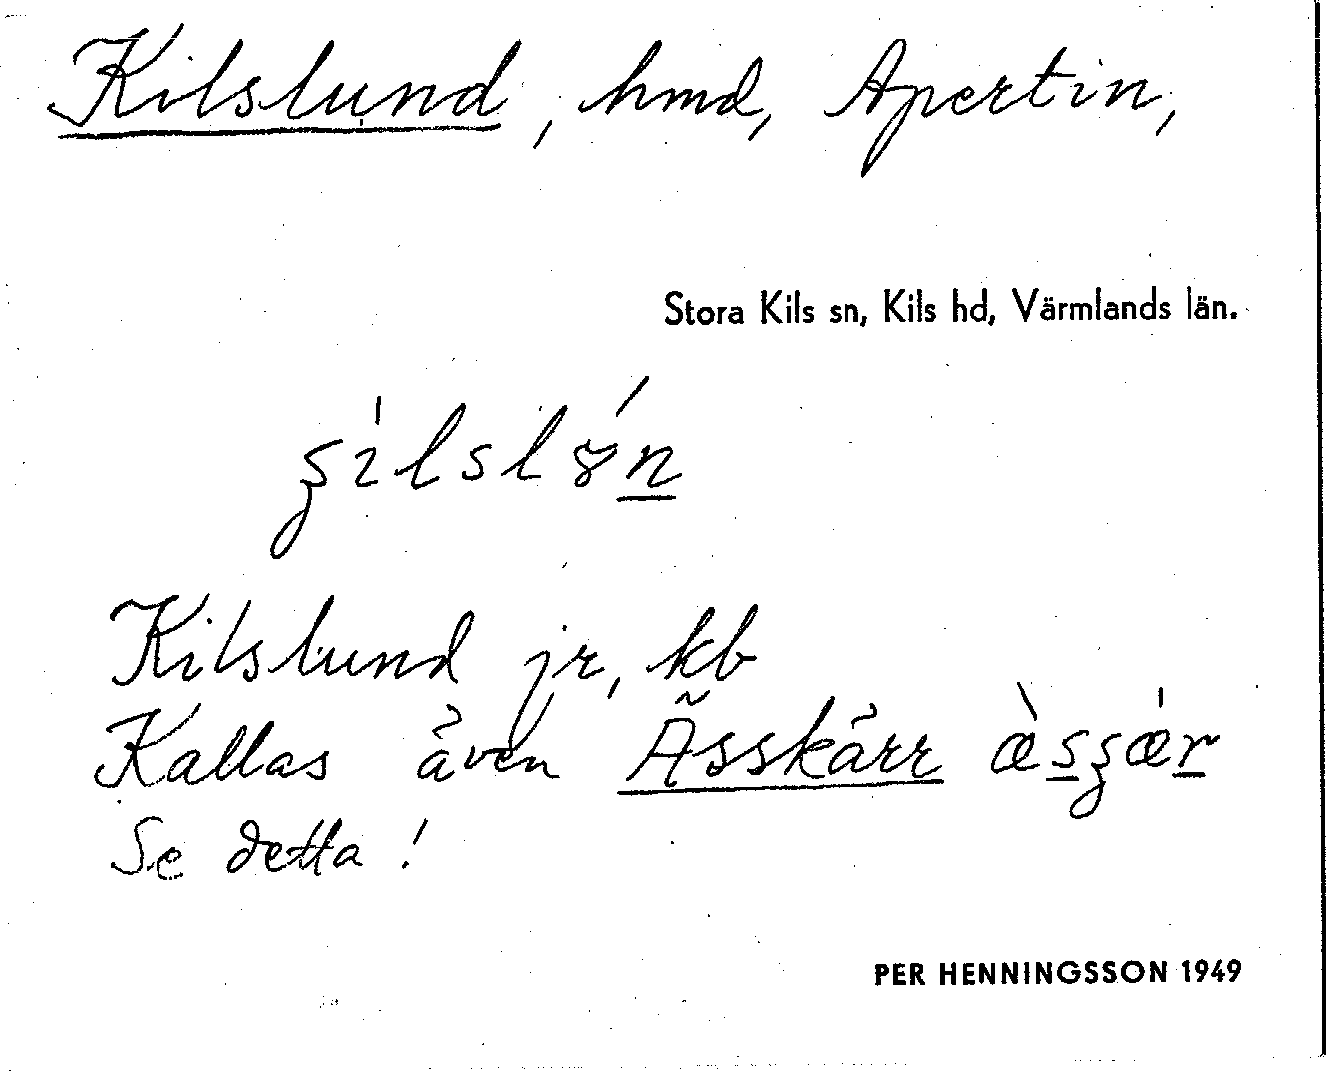 Kilslund, hmd, Apertin,
Stora Kils sn, Kils hd, Värmlands län.
Kilslund jr, kb
Kallas även Ässkärr
Se detta!
PER HENNINGSSON 1949